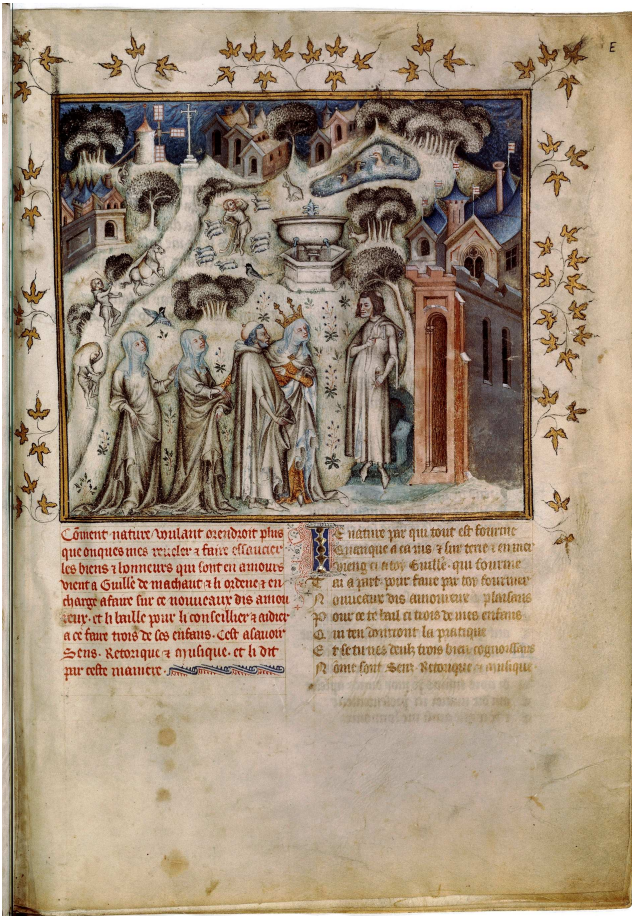 E
Cōment nature voulant orendroit plus
que onques mes reveler & faire essaucier
les biens & honneurs qui sont en amours
vient a Guille de machaut & li ordene & en
charge a faire sur ce nouveaux dis amou
reux. et li baille pour li conseillier & aidier
a ce faire trois de ses enfans. Cest asavoir
Sens. Retorique & musique. et li dit
par ceste maniere.
Ie nature par qui tout est fourme
Quanque a ca ius & sur terre & en mer
Vieng ci a toy Guille. qui fourme
Tai a part. pour faire par toy fourmer
Nouveaux dis amoureux plaisans
Pour ce te bail ci trois de mes enfans
Qui ten donront la pratique
Et se tu nes deulz trois bien cognoissans
Nōme sont Sens. Retorique & musique.